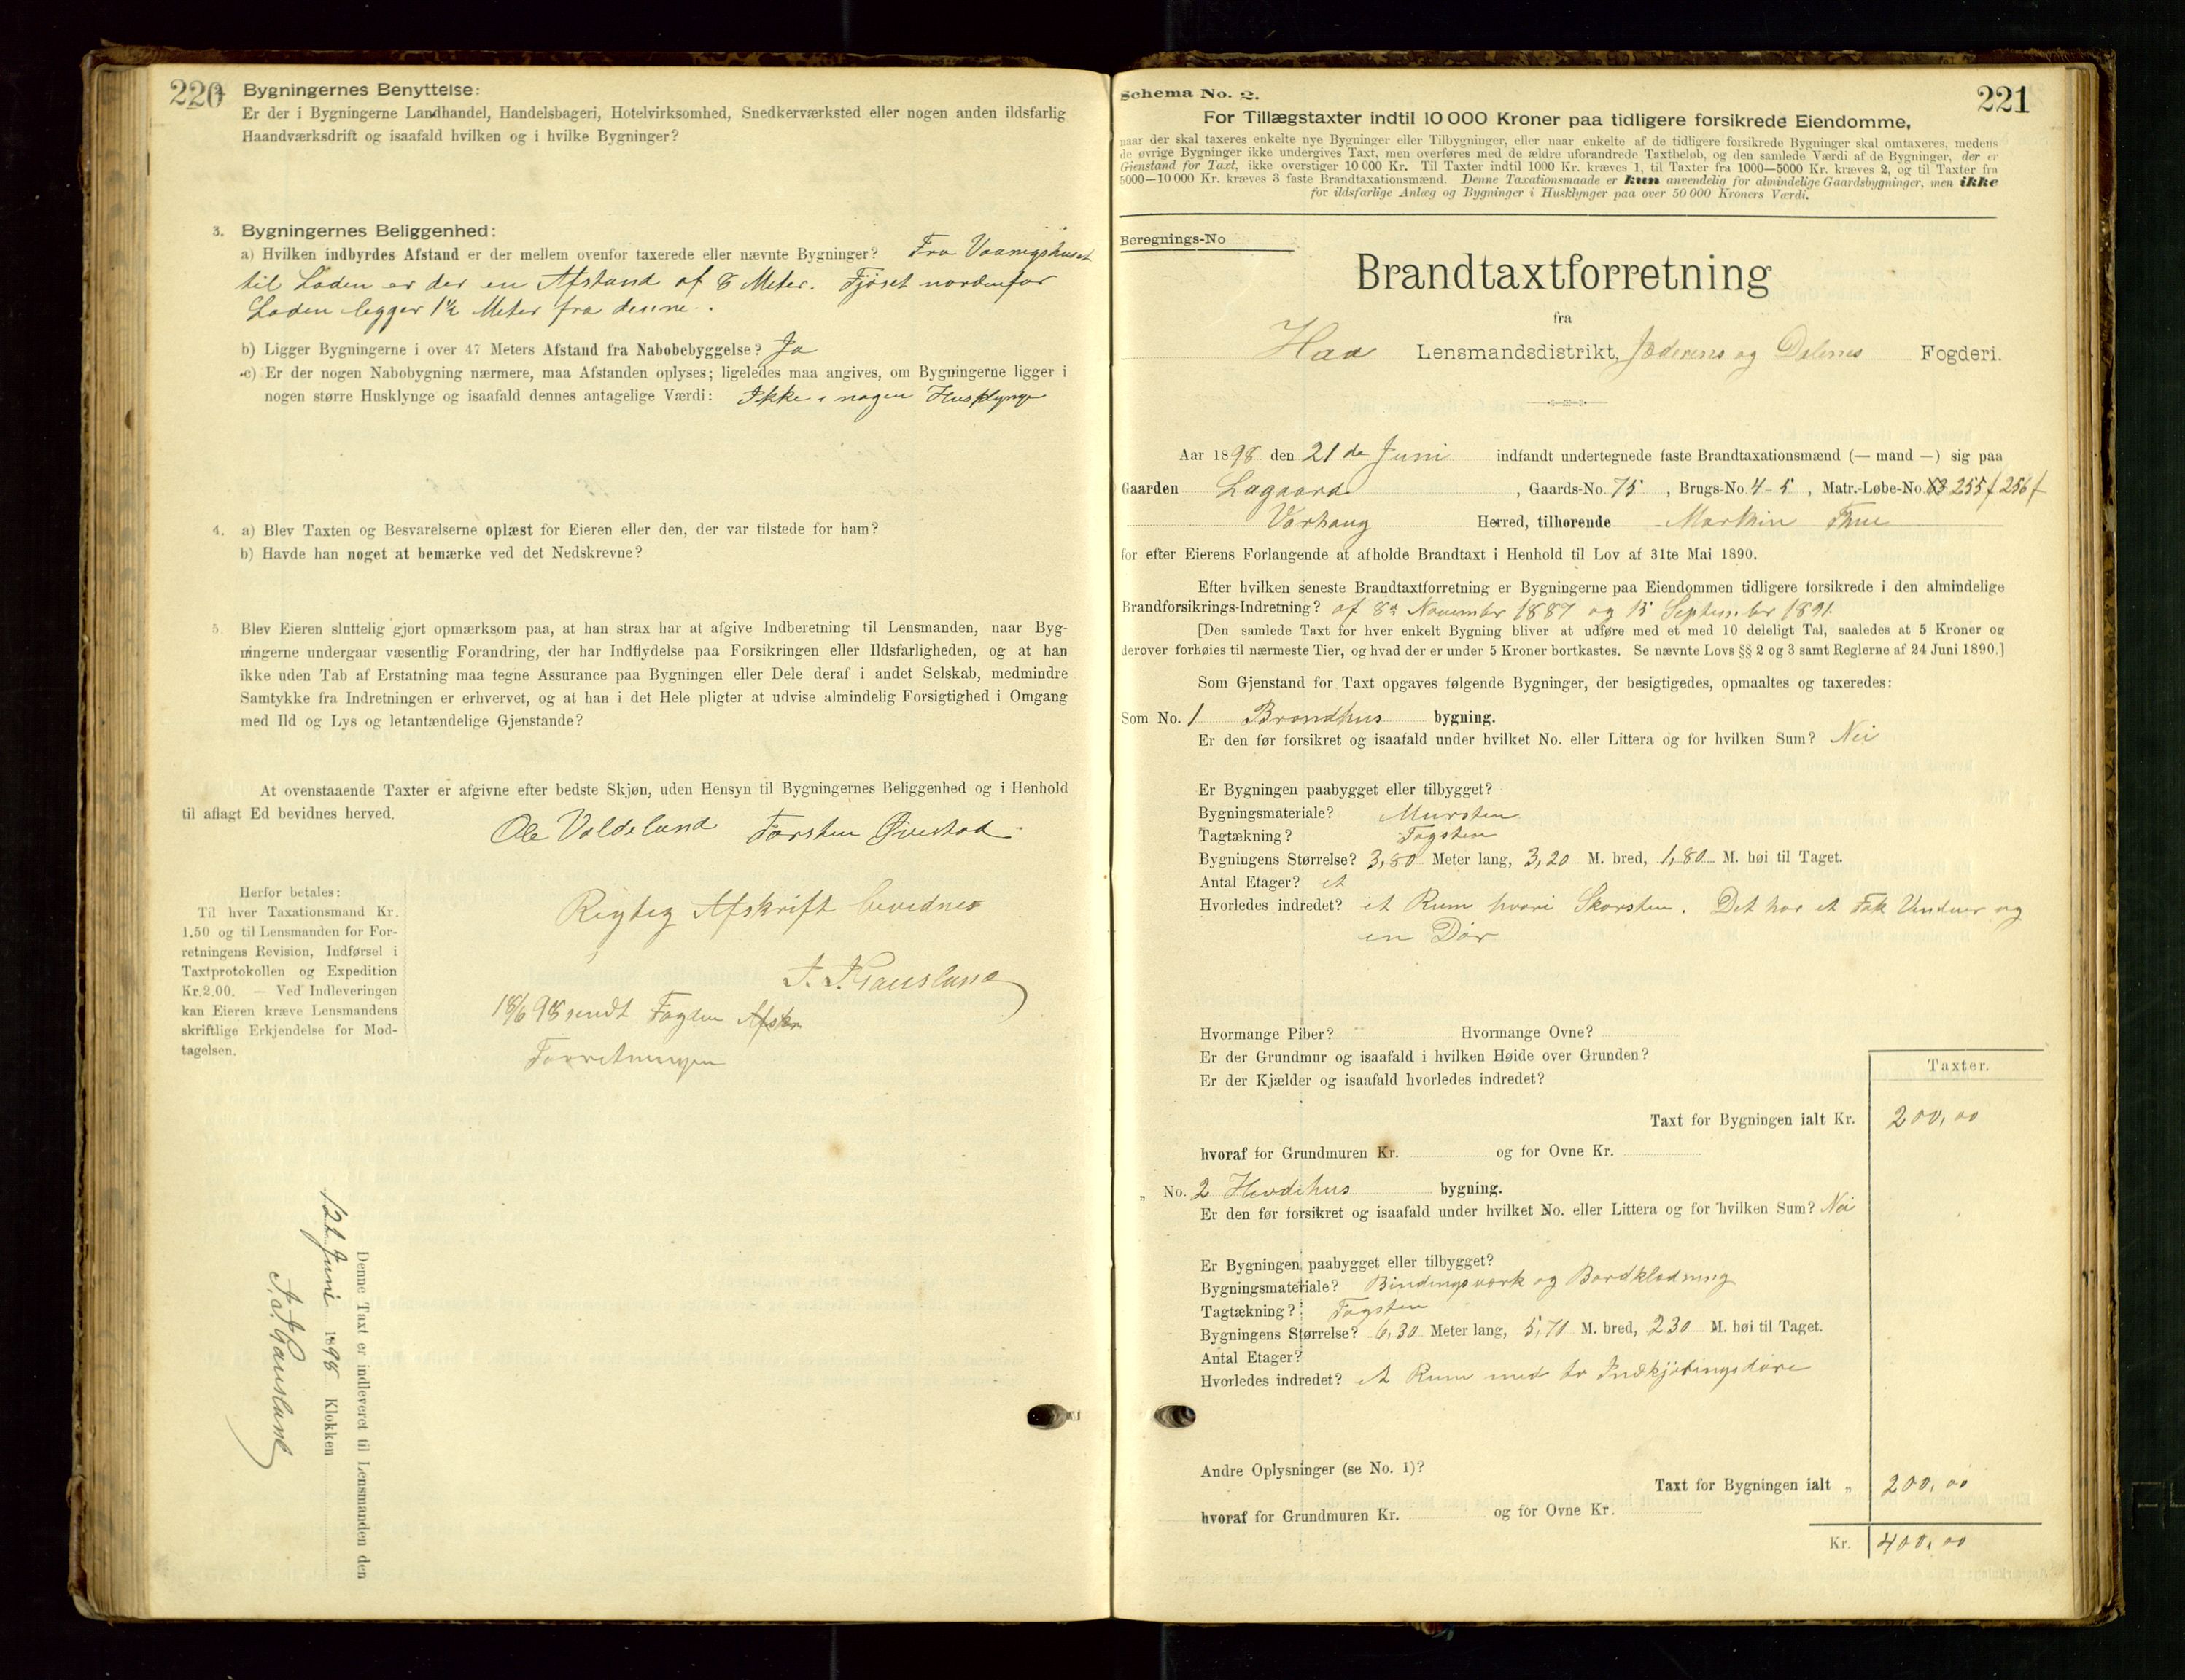 220
Bygningernes Benyttelse:
Er der i Bygningerne Landhandel, Handelsbageri, Hotelvirksomhed, Snedkerværksted eller nogen anden ildsfarlig
Haandværksdrift og isaafald hvilken og i hvilke Bygninger?
3. Bygningernes Beliggenhed:
a) Hvilken indbyrdes Afstand er der mellem ovenfor taxerede eller nævnte Bygninger? Fra Vaaningshuset
til Laden er der en Afstand af 8 Meter. Fjøset nordenfor
Laden legger 1½ Meter fra denne.
b) Ligger Bygningerne i over 47 Meters Afstand fra Nabobebyggelse? Ja
c) Er der nogen Nabobygning nærmere, maa Afstanden oplyses; ligeledes maa angives, om Bygningerne ligger i
nogen større Husklynge og isaafald dennes antagelige Værdi: Ikke i nogen Husklynge
4. a) Blev Taxten og Besvarelserne oplæst for Eieren eller den, der var tilstede for ham?
b) Havde han noget at bemærke ved det Nedskrevne?
5. Blev Eieren sluttelig gjort opmærksom paa, at han strax har at afgive Indberetning til Lensmanden, naar Byg-
ningerne undergaar væsentlig Forandring, der har Indflydelse paa Forsikringen eller Ildsfarligheden, og at han
ikke uden Tab af Erstatning maa tegne Assurance paa Bygningen eller Dele deraf i andet Selskab, medmindre
Samtykke fra Indretningen er erhvervet, og at han i det Hele pligter at udvise almindelig Forsigtighed i Omgang
med Ild og Lys og letantændelige Gjenstande?
At ovenstaaende Taxter er afgivne efter bedste Skjøn, uden Hensyn til Bygningernes Beliggenhed og i Henhold
til aflagt Ed bevidnes herved.
Ole Valdeland Torsten
Herfor betales:
Til hver Taxationsmand Kr.
1.50 og til Lensmanden for For-
retningens Revision, Indførsel i
Taxtprotokollen og Expedition
Kr. 2.00. — Ved Indleveringen
kan Eieren kræve Lensmandens
skriftlige Erkjendelse for Mod-
tagelsen.
Rigtig Afskrift bevidnes
18/6 98 sendt Fogden Afskr
Forretningen
Denne Taxt er indleveret til Lensmanden den
12t Juni 1898 Klokken
221
Schema No. 2.
For Tillægstaxter indtil 10 000 Kroner paa tidligere forsikrede Eiendomme,
naar der skal taxeres enkelte nye Bygninger eller Tilbygninger, eller naar enkelte af de tidligere forsikrede Bygninger skal omtaxeres, medens
de øvrige Bygninger ikke undergives Taxt, men overføres med de ældre uforandrede Taxtbeløb, og den samlede Værdi af de Bygninger, der er
Gjenstand for Taxt, ikke overstiger 10 000 Kr. Til Taxter indtil 1000 Kr. kræves 1, til Taxter fra 1000—5000 Kr. kræves 2, og til Taxter fra
5000—10 000 Kr. kræves 3 faste Brandtaxationsmænd. Denne Taxationsmaade er kun anvendelig for almindelige Gaardsbygninger, men ikke
for ildsfarlige Anlæg og Bygninger i Husklynger paa over 50 000 Kroners Værdi.
Beregnings-No
Brandtaxtforretning
fra
Haa Lensmandsdistrikt, Jæderens og Dalenes Fogderi.
Aar 1898 den 21de Juni indfandt undertegnede faste Brandtaxationsmænd (— mand —) sig paa
Gaarden Lagaard, Gaards-No. 75, Brugs-No. 4-5, Matr.-Løbe-No. 255f 256f
Varhaug Herred, tilhørende Marthin Thue
for efter Eierens Forlangende at afholde Brandtaxt i Henhold til Lov af 31te Mai 1890.
Efter hvilken seneste Brandtaxtforretning er Bygningerne paa Eiendommen tidligere forsikrede i den almindelige
Brandforsikrings-Indretning? af 8de November 1887 og 15 September 1891.
[Den samlede Taxt for hver enkelt Bygning bliver at udføre med et med 10 deleligt Tal, saaledes at 5 Kroner og
derover forhøies til nærmeste Tier, og hvad der er under 5 Kroner bortkastes. Se nævnte Lovs §§ 2 og 3 samt Reglerne af 24 Juni 1890.]
Som Gjenstand for Taxt opgaves følgende Bygninger, der besigtigedes, opmaaltes og taxeredes:
Som No. 1 Brandhus bygning.
Er den før forsikret og isaafald under hvilket No. eller Littera og for hvilken Sum? Nei
Er Bygningen paabygget eller tilbygget?
Bygningsmateriale? Mursten
Tagtækning? Tagsten
Bygningens Størrelse? 3,80 Meter lang, 3,20 M. bred, 1,80 M. høi til Taget.
Antal Etager? et
Hvorledes indredet? et Rum hvori Skorsten. Det har et Fak Vinduer og
en Dør
Hvormange Piber? Hvormange Ovne?
Er der Grundmur og isaafald i hvilken Høide over Grunden?
Er der Kjælder og isaafald hvorledes indredet?
Taxter.
Taxt for Bygningen ialt Kr. 200,00
hvoraf for Grundmuren Kr. og for Ovne Kr.
„ No. 2 Hvdehus bygning.
Er den før forsikret og isaafald under hvilket No. eller Littera og for hvilken Sum? Nei
Er Bygningen paabygget eller tilbygget?
Bygningsmateriale? Bindingsværk og Bordklædning
Tagtækning? Tagsten
Bygningens Størrelse? 6,30 Meter lang, 5,70 M. bred, 230 M. høi til Taget.
Antal Etager?
Hvorledes indredet? et Rum med to Indkjøringsdøre
Andre Oplysninger (se No. 1)?
Taxt for Bygningen ialt „ 200,00
hvoraf for Grundmuren Kr. og for Ovne Kr.
Kr. 400,00